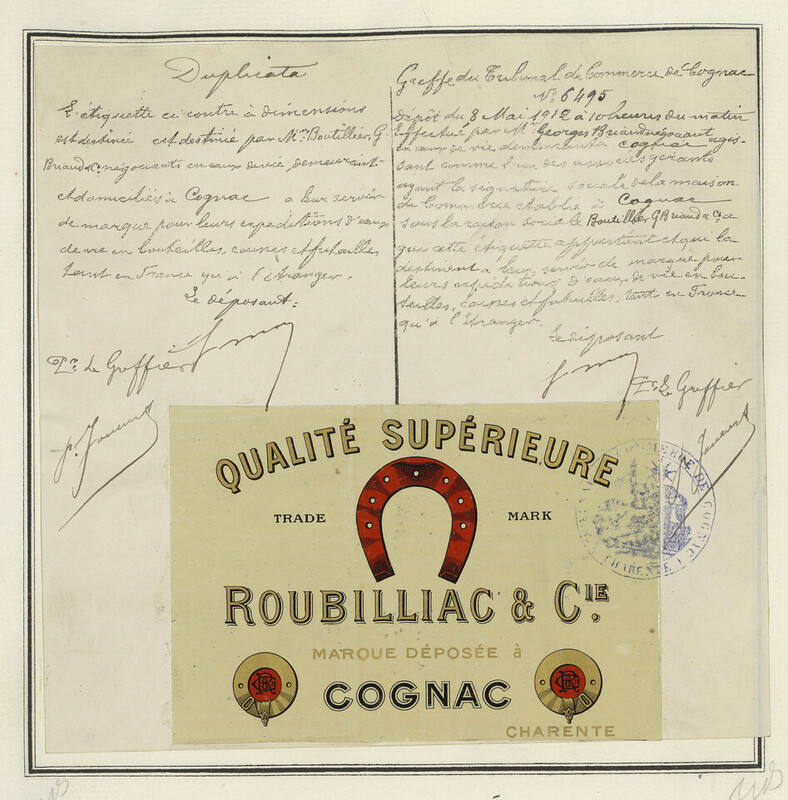 Duplicata
L'étiquette ci contre à dimensions
est destinée est destiné par Mrs Boutillier, G.
Briand & Cie négociants en eaux de vie, demeurant
et domiciliés à Cognac a leur servir
de marque pour leurs expéditions d'eaux
de vie en bouteilles, caisses et futailles
tant en France qu'à l'étranger.
Le déposant:
Le Greffier
Greffe du Tribunal de Commerce de Cognac
No 6495
Dépôt du 8 Mai 1912 à 10 heures du matin
Effectué par Mr Georges Briand négociant
en eaux de vie demeurant à Cognac agis-
sant comme l'un des associés gérants
ayant la signature sociale de la maison
de Commerce établie à Cognac
sous la raison sociale Boutillier G Briand & Cie à
qui cette étiquette appartient et qui la
destinent a leur servir de marque pour
leurs expéditions d'eaux de vie en bou-
teilles, caisses et futailles, tant en France
qu'à l'étranger.
Le déposant
Le Greffier
QUALITÉ SUPÉRIEURE
TRADE MARK
ROUBILLIAC & CIE.
MARQUE DÉPOSÉE à
COGNAC
CHARENTE
COMMERCE DE COGNAC
CHARENTE